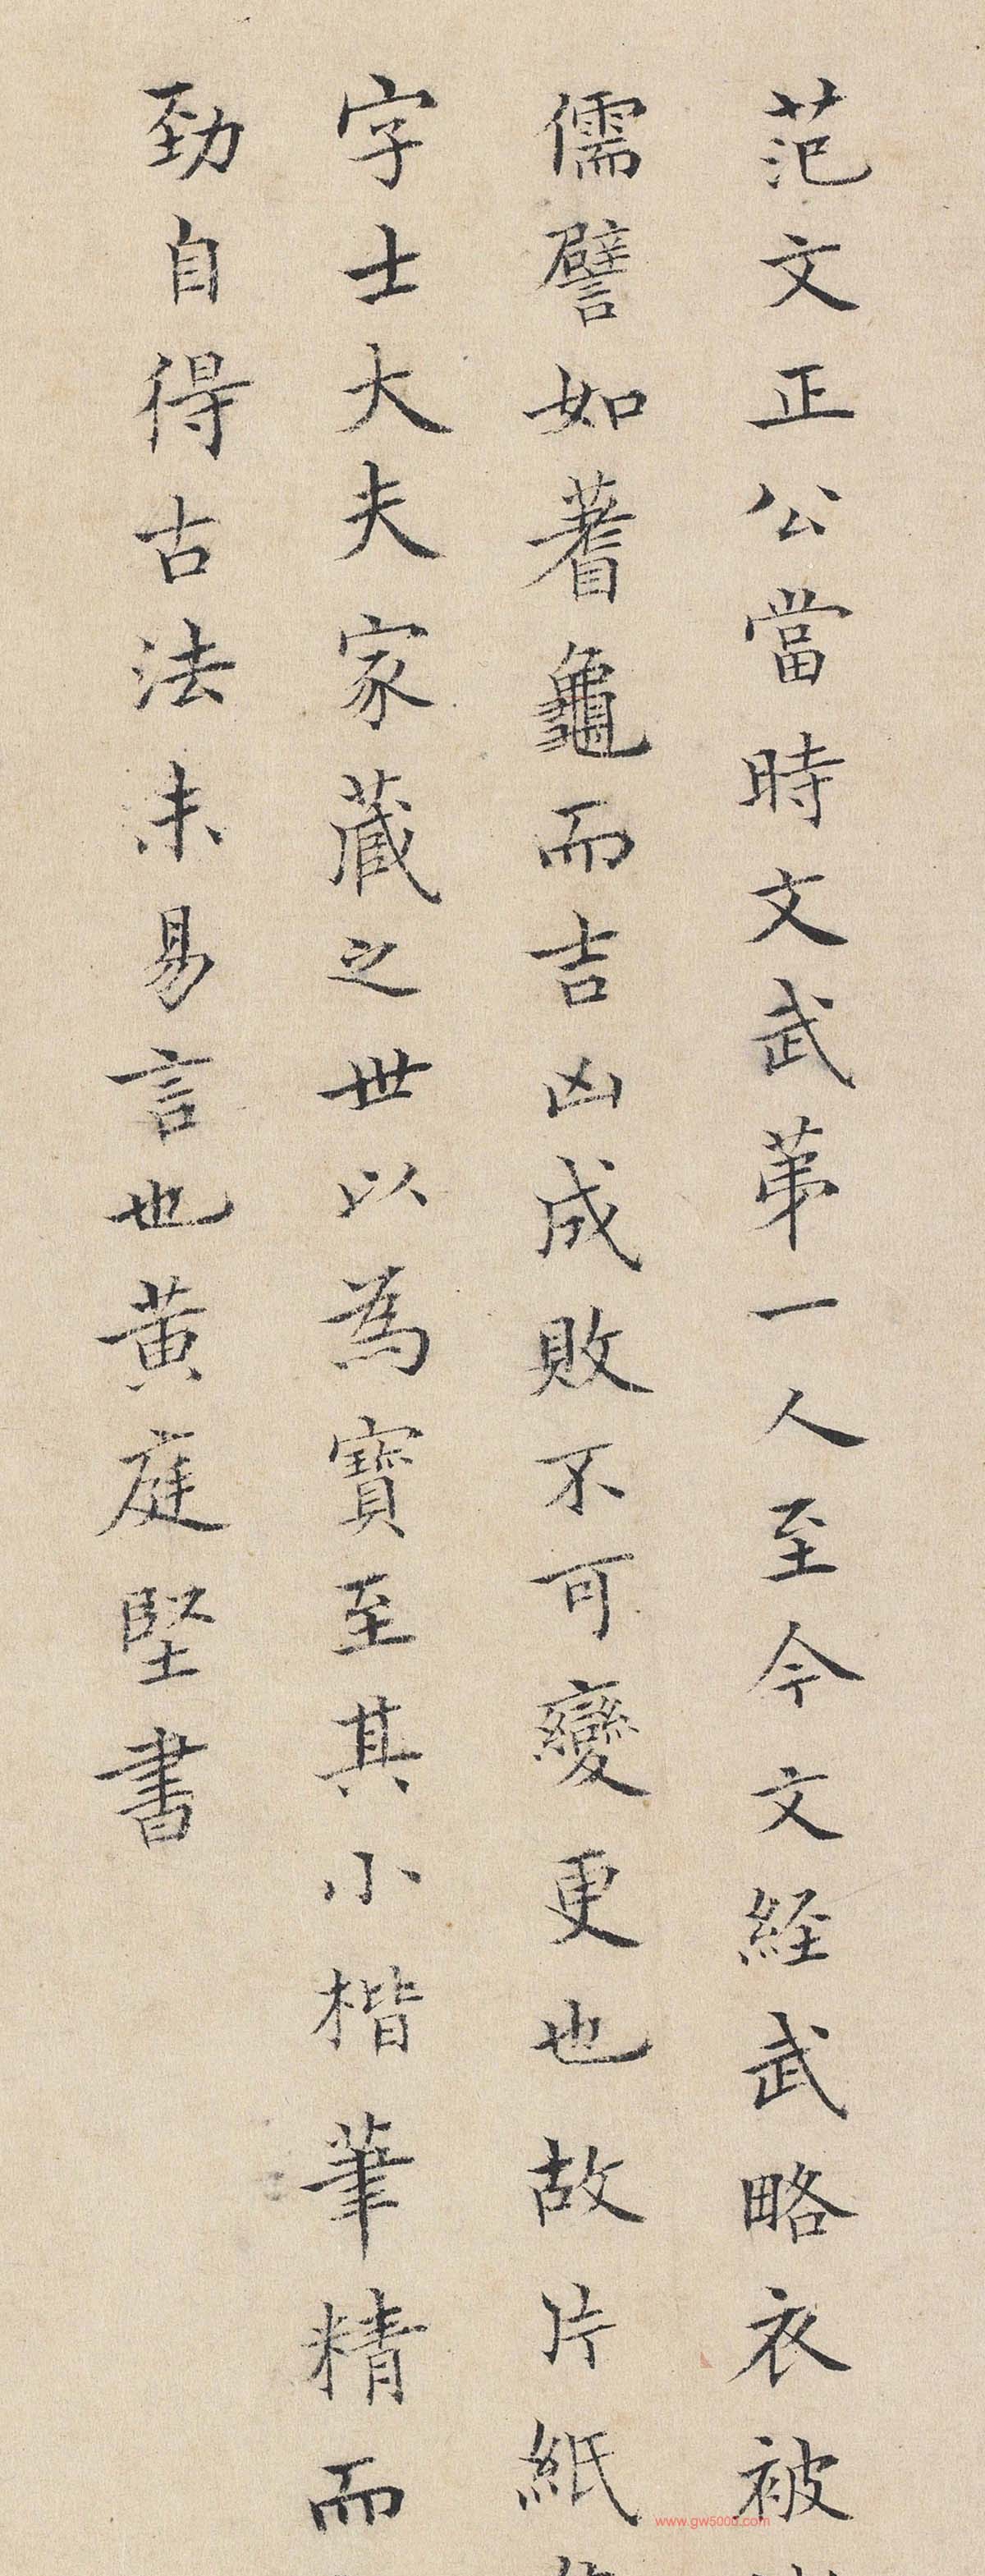 范文正公當時文武苐一人至今文経武略衣被
儒譬如蓍龜而吉凶成敗不可變更也故片紙
字士大夫家藏之世以為寶至其小楷筆精而
勁自得古法未易言也黄庭堅書
www.gw5000.com